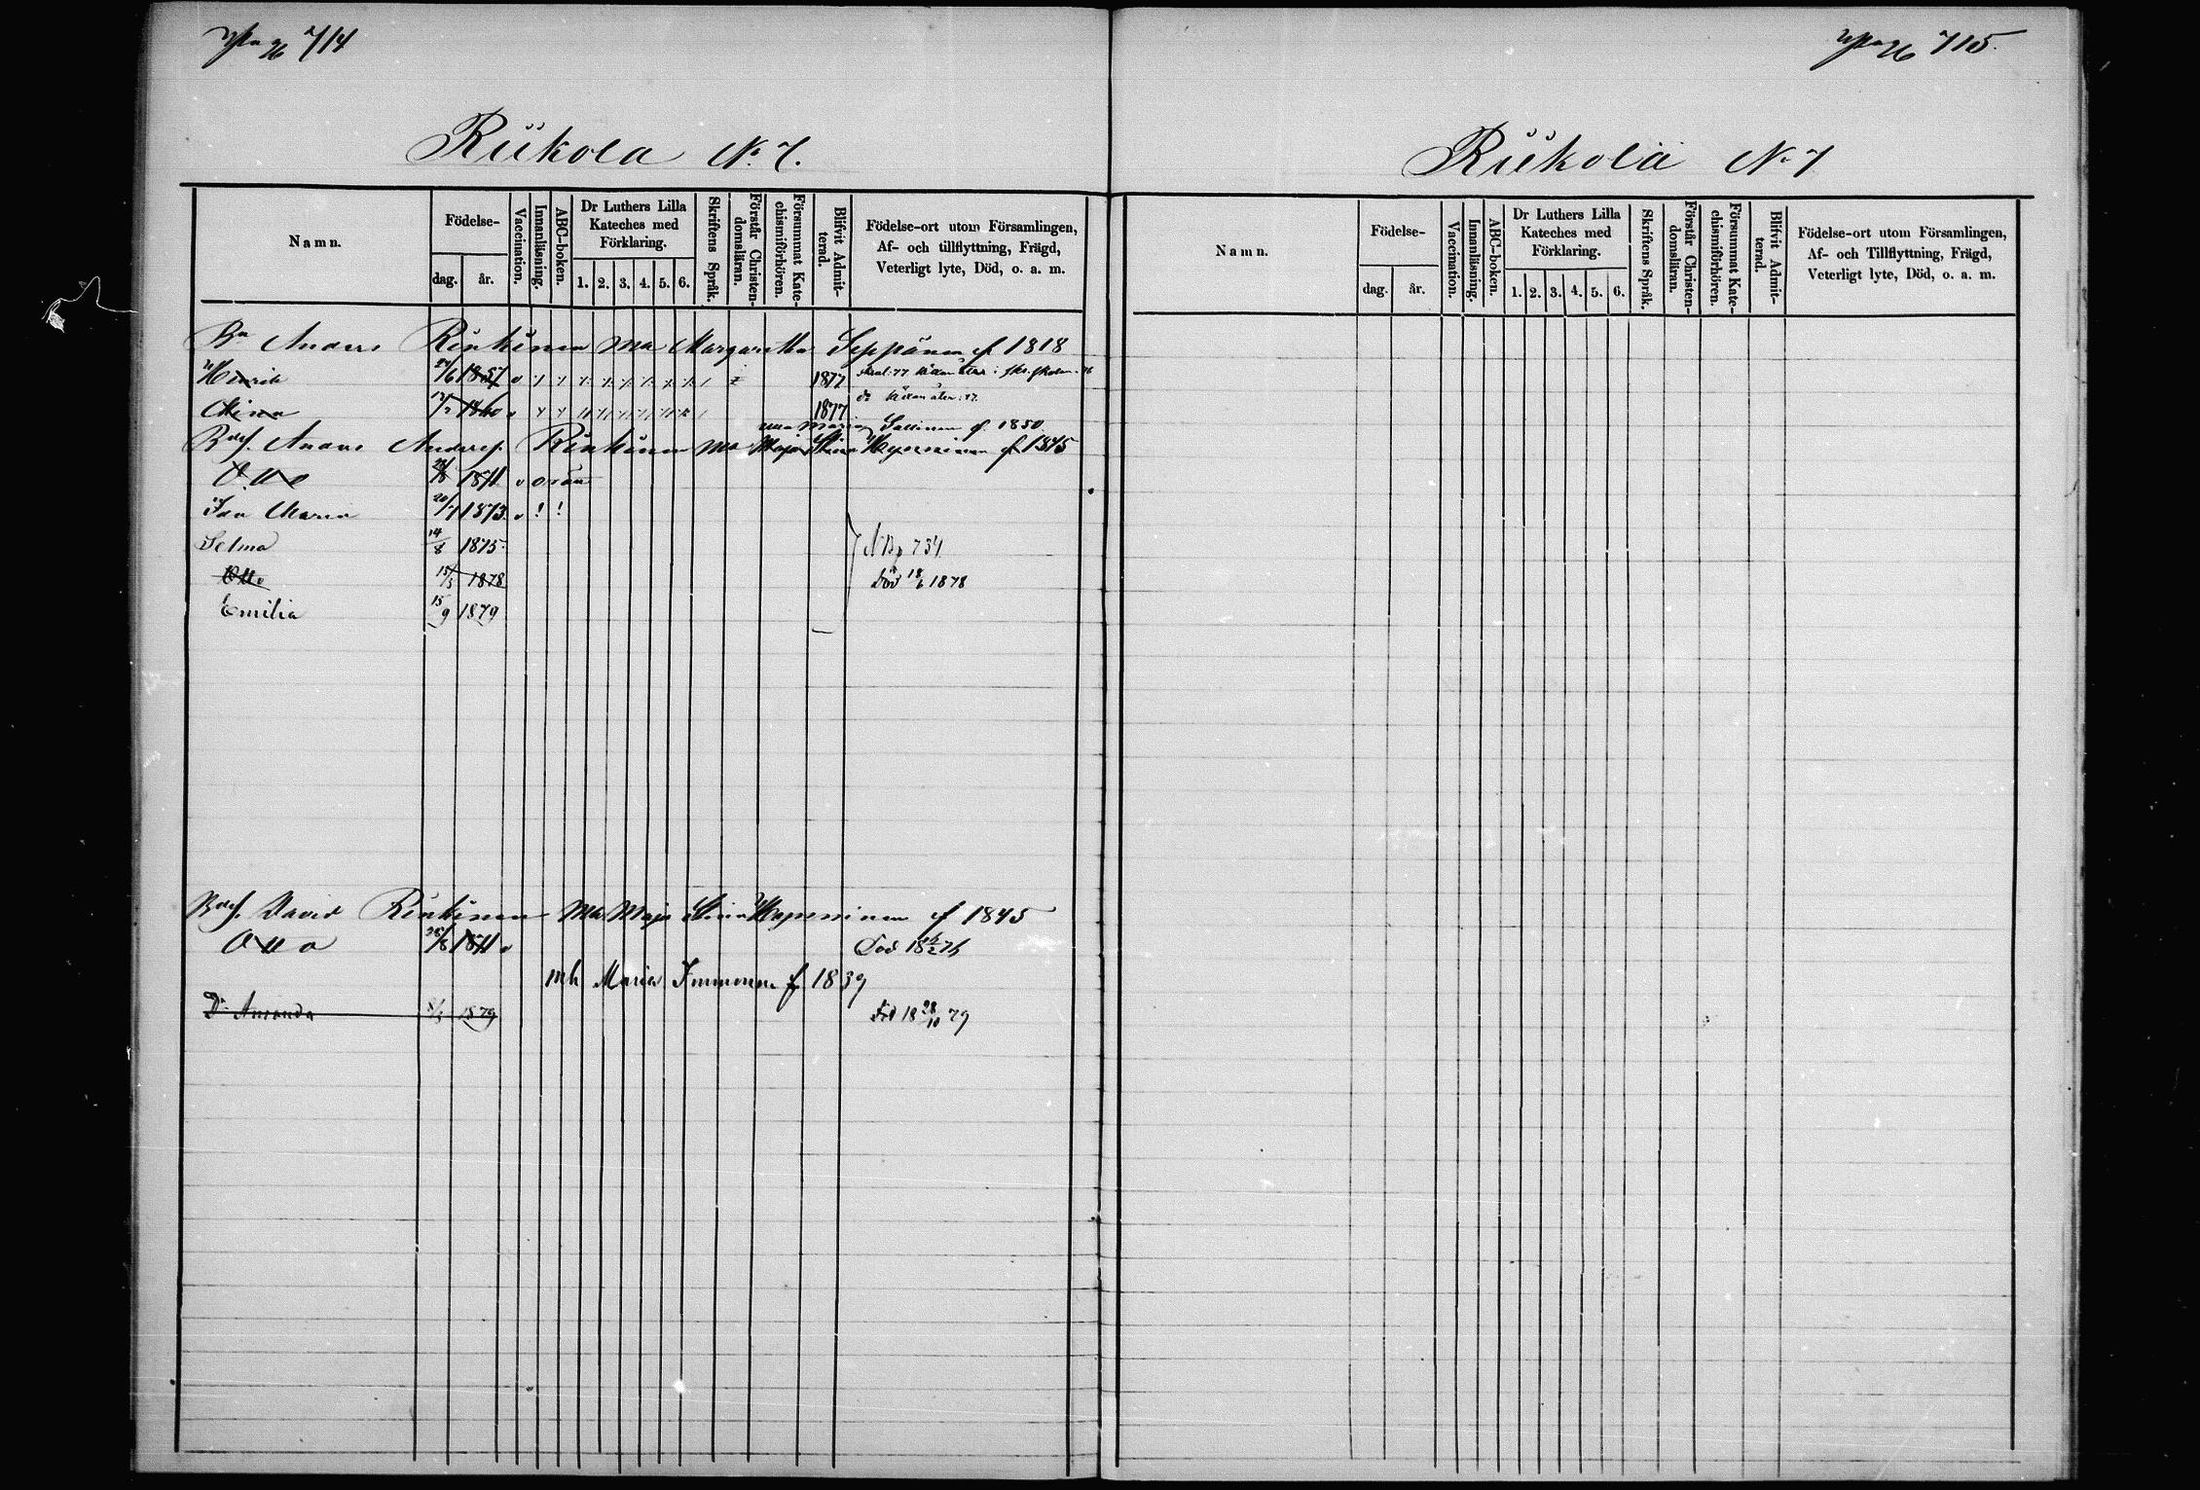 714
Riikola No 7.
Namn.
Födelse-
dag.
år.
Vaccination.
Innanläsning.
ABC-boken.
Dr Luthers Lilla Kateches med Förklaring.
1. 2. 3. 4. 5. 6.
Skriftens Språk.
Förstår Christendomsläran.
Försummat Katechismiförhören.
Blifvit Admitterad.
Födelse-ort utom Församlingen, Af- och tillflyttning, Frägd, Veterligt lyte, Död, o. a. m.
Bn Anders Rinkinen ma Margaretha Seppänen f 1818
Henrik 1857 1877
Stina 1860 1877
Maria Sallinen f. 1850
Anders Andersf. Rinkinen ma Maja Stina Heponinen f 1845
Otto 1871
Ida Maria 20/7 1873
Selma 14/8 1875 NB p 734
Otto 15/3 1878 död 18/6 1878
Emilia 15/9 1879
David Rinkinen ma Maja Stina f 1845
Otto 1871 Död
mh Maria Immonen f 1839
Dr Amanda 1879 Död 18 28/10 79
715.
Riikola No 7
Namn.
Födelse-
dag.
år.
Vaccination.
Innanläsning.
ABC-boken.
Dr Luthers Lilla Kateches med Förklaring.
1. 2. 3. 4. 5. 6.
Skriftens Språk.
Förstår Christendomsläran.
Försummat Katechismiförhören.
Blifvit Admitterad.
Födelse-ort utom Församlingen, Af- och Tillflyttning, Frägd, Veterligt lyte, Död, o. a. m.